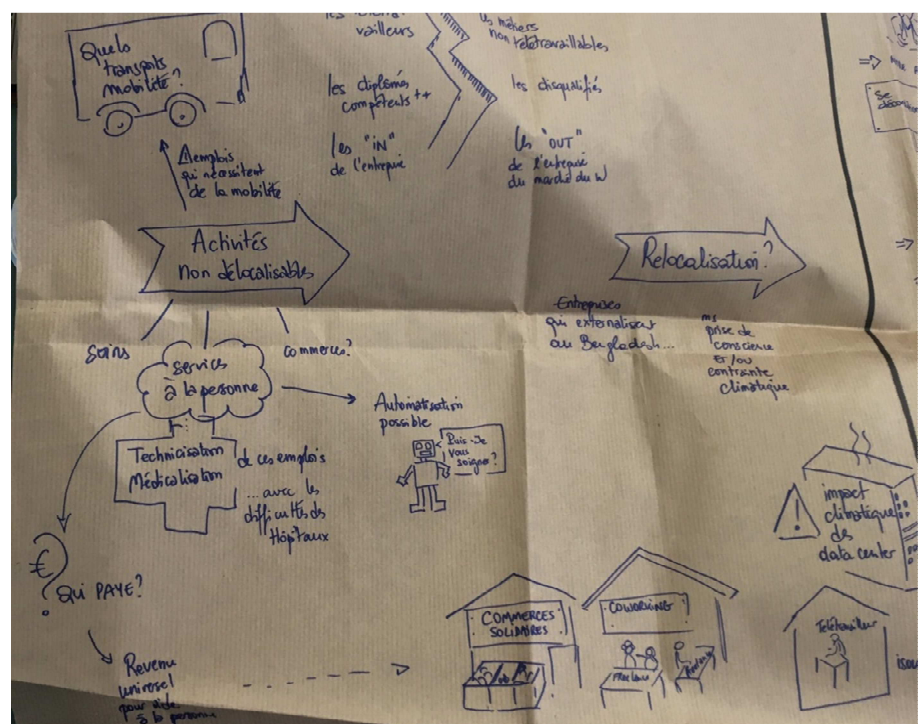 Quels
transports
mobilité?
vailleurs
les diplômés
compétents ++
les "IN"
de l'entreprise
métiers
non télétravaillables
les disqualifiés
les "OUT"
de l'entreprise
du marché du W
emplois
qui nécessitent
de la mobilité
Activités
non délocalisables
Relocalisation?
Entreprises
qui externalisent
au Bangladesh...
ms
prise de
conscience
et/ou
contrainte
climatique
soins
services
à la personne
commerces?
Automatisation
possible
Puis-je
vous
soigner?
Technicisation
Médicalisation
de ces emplois
...avec les
difficultés des
Hôpitaux
€
QUI PAYE?
Revenu
universel
pour aide
à la personne
COMMERCES
SOLIDAIRES
COWORKING
Freelance
Freelance
impact
climatique
des
data center
Télétravailleur
Se